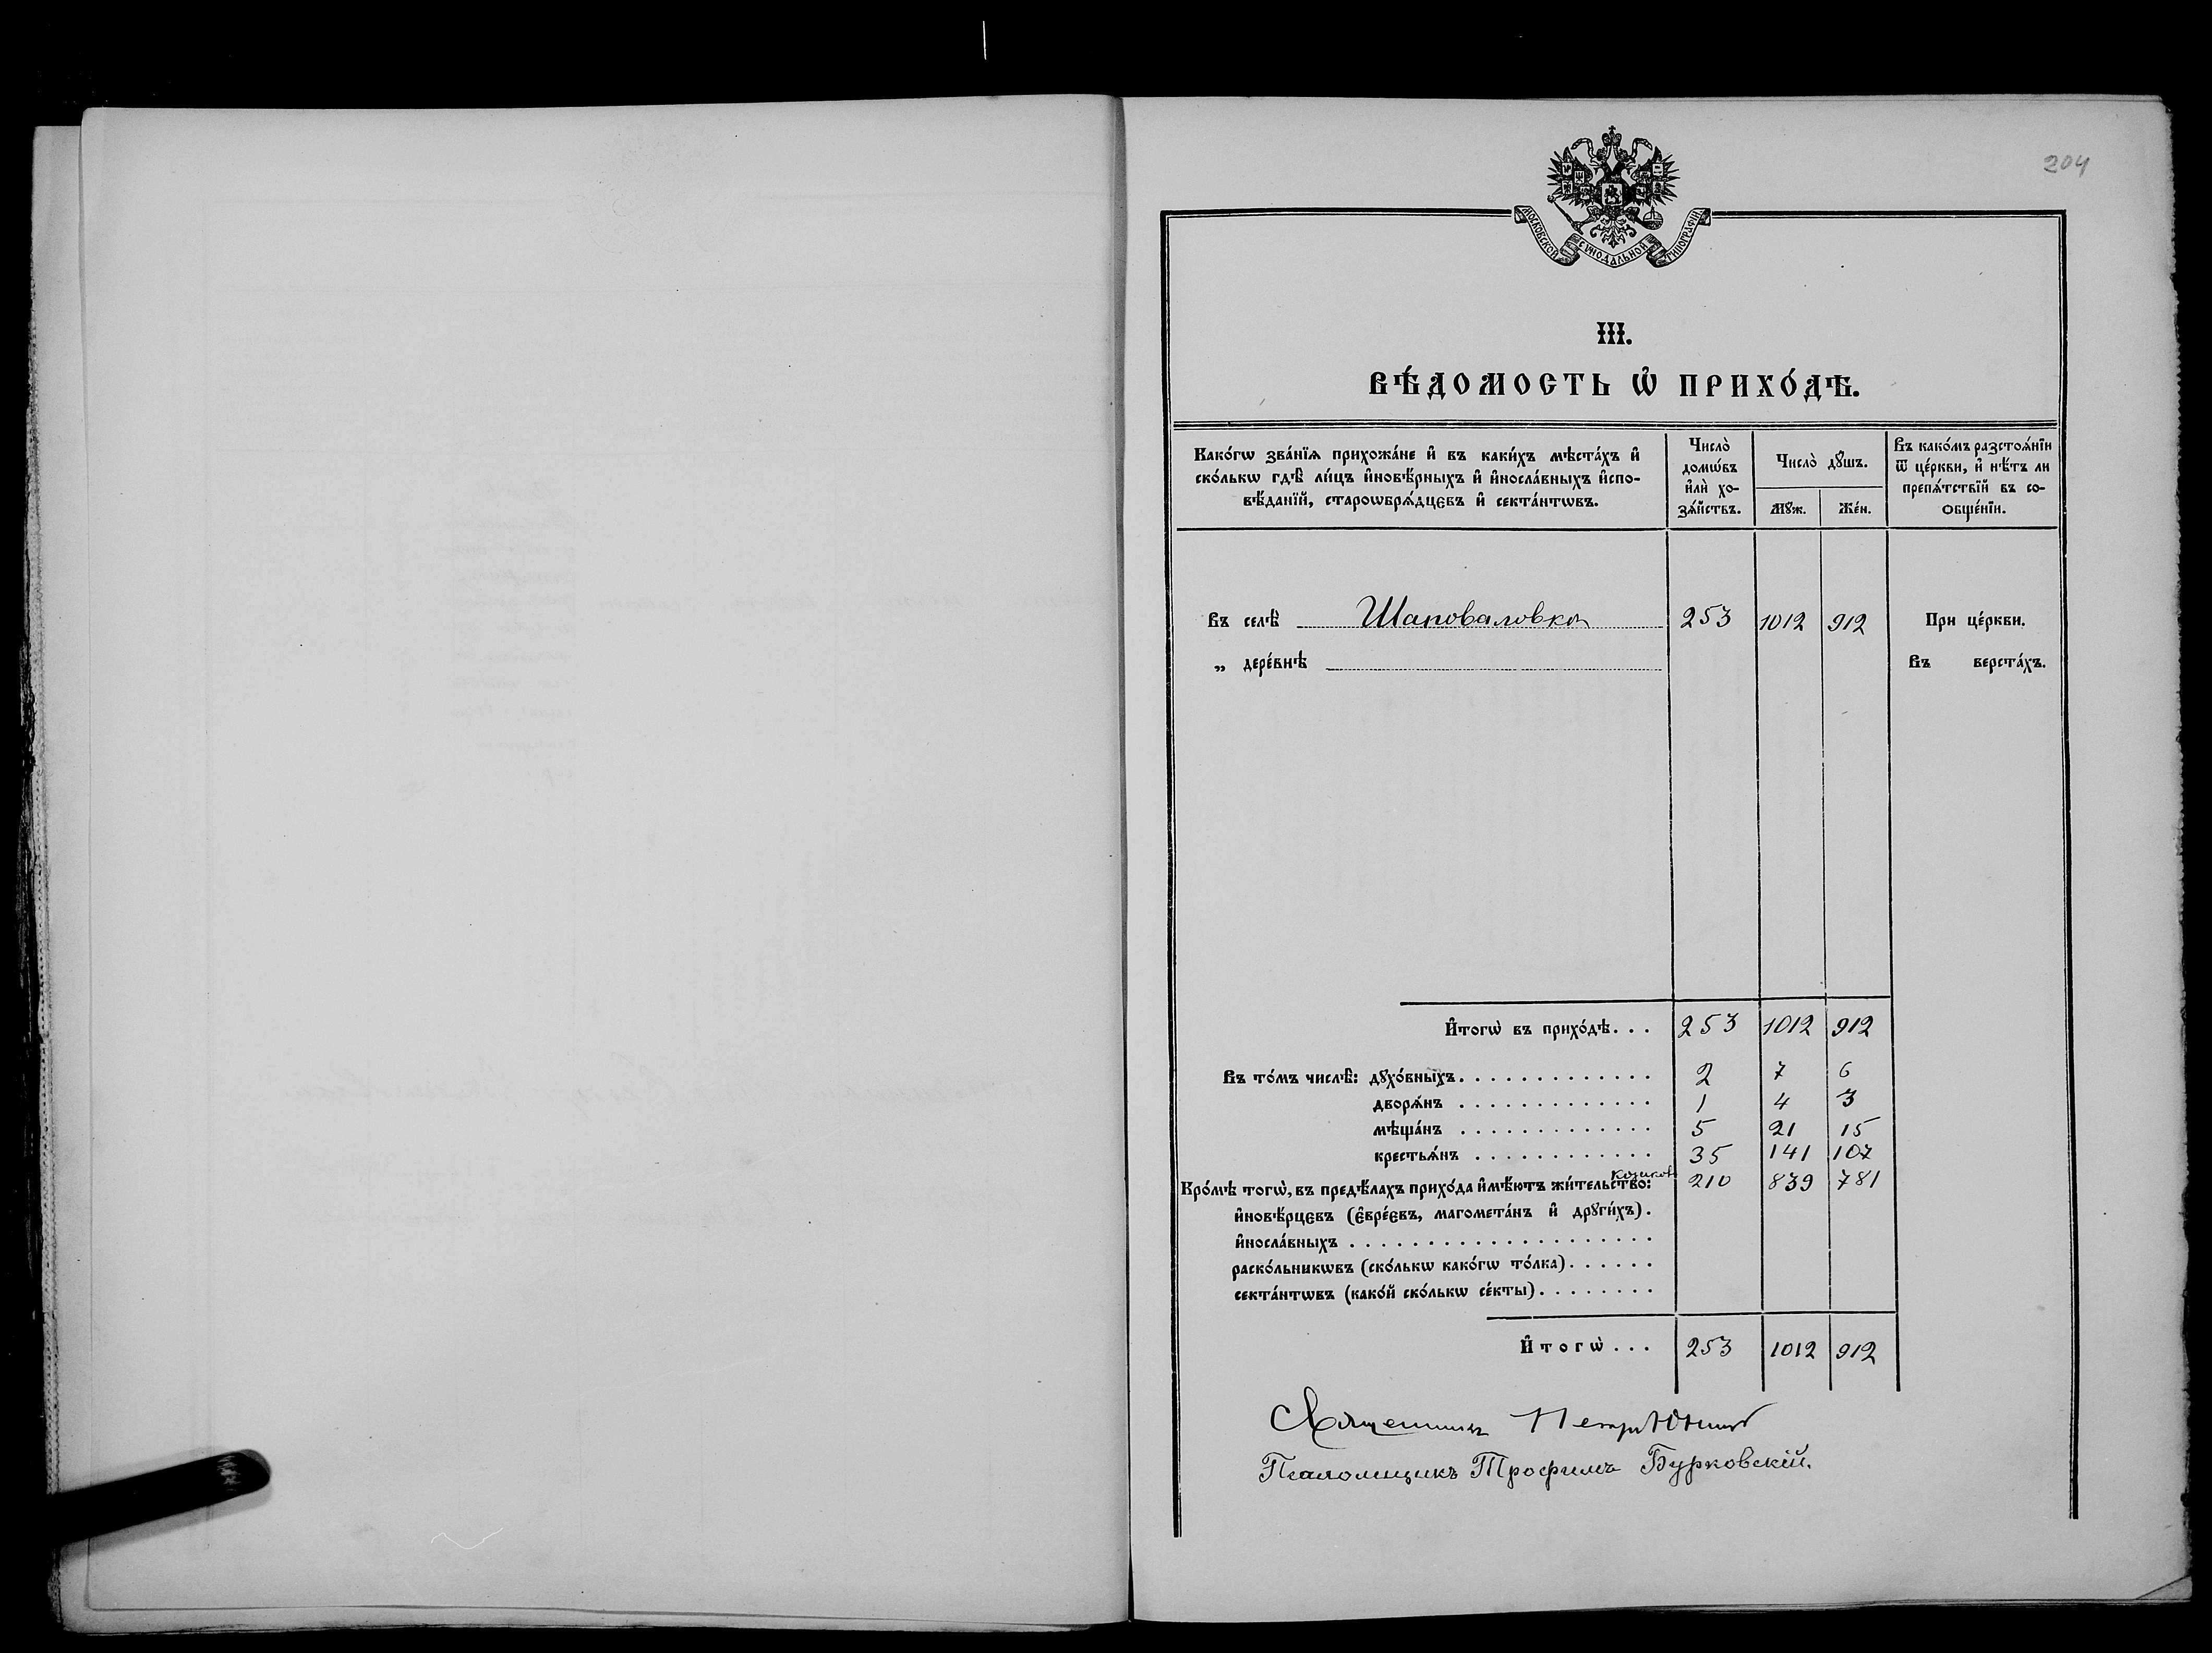 204
МОСКОВСКОЙ СѴНОДАЛЬНОЙ ТИПОГРАФІИ
III.
ВѢ́ДОМОСТЬ Ѡ҆ ПРИХО́ДѢ.
Како́гѡ зва́нїѧ прихожа́не и҆ въ каки́хъ мѣста́хъ и҆
ско́лькѡ гдѣ̀ ли́цъ и҆новѣ́рныхъ и҆ и҆носла́вныхъ и҆спо-
вѣ́данїй, староѡбрѧ́дцєвъ и҆ секта́нтѡвъ.
Число̀
домѡ́въ
и҆лѝ хо-
зѧ́йствъ.
Число̀ дꙋ́шъ.
Мꙋ́ж.
Же́н.
Въ како́мъ разстоѧ́нїи
ѿ це́ркви, и҆ нѣ́тъ ли
препѧ́тствїй въ со-
ѻбще́нїи.
Въ селѣ̀ Шаповаловкѣ 253 1012 912 При це́ркви.
„ дере́внѣ Въ верста́хъ.
И҆тогѡ̀ въ прихо́дѣ. . . 253 1012 912
Въ то́мъ числѣ̀: дꙋхо́вныхъ. . . . . . . . . . . . . 2 7 6
дворѧ́нъ . . . . . . . . . . . . . 1 4 3
мѣща́нъ . . . . . . . . . . . . . 5 21 15
крестьѧ́нъ . . . . . . . . . . . . 35 141 107
козаковъ
Кро́мѣ тогѡ̀, въ предѣ́лахъ прихо́да и҆мѣ́ютъ жи́тельство: 210 839 781
и҆новѣ́рцєвъ (є҆вре́євъ, магомета́нъ и҆ дрꙋги́хъ) .
и҆носла́вныхъ . . . . . . . . . . . . . . . . . . . .
раско́льникѡвъ (ско́лькѡ како́гѡ то́лка) . . . . . .
секта́нтѡвъ (како́й ско́лькѡ се́кты) . . . . . . . .
И҆тогѡ̀ . . . 253 1012 912
Священникъ
Псаломщикъ Трофимъ Бурковскій.